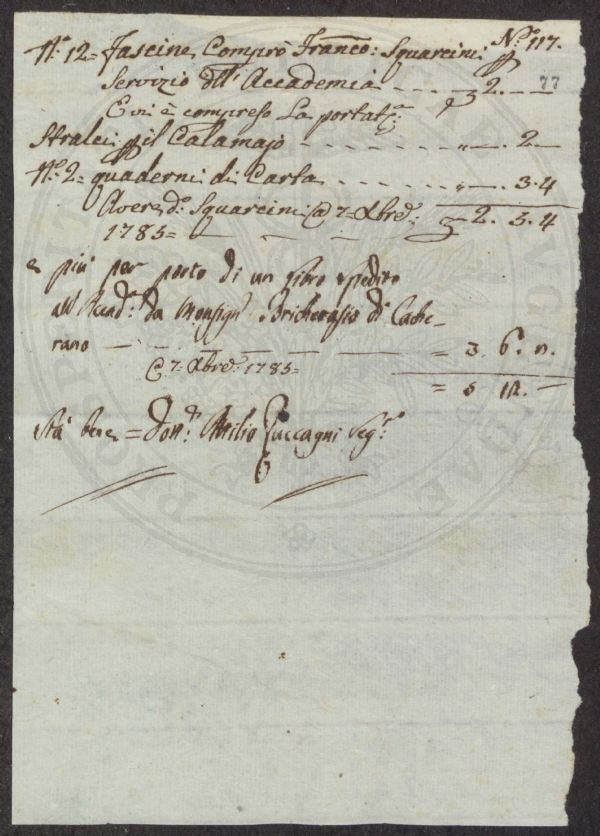 N.º 117.
N.º 12= Fascine Comprò Franco: Squarcini p
Servizio dell' Accademia - - - - 2. —
77
E vi è compreso La portat.ª
Stralci p il Calamajo - - - - - - - „ —. 2 —
N.º 2= quaderni di Carta - - - - - „ —. 3.4
Avere d.º Squarcini @ 7= Xbre: 2. 5. 4
1785= — — — —
e più per porto di un libro spedito
all' Accad.ª da Monsig.r Bricherasio di Cave-
rano — — — — — = 3. 6. n.
@ 7= Xbre: 1785= = 5 12. —
Stà bene = Dott.r Attilio Zuccagni Seg.rio